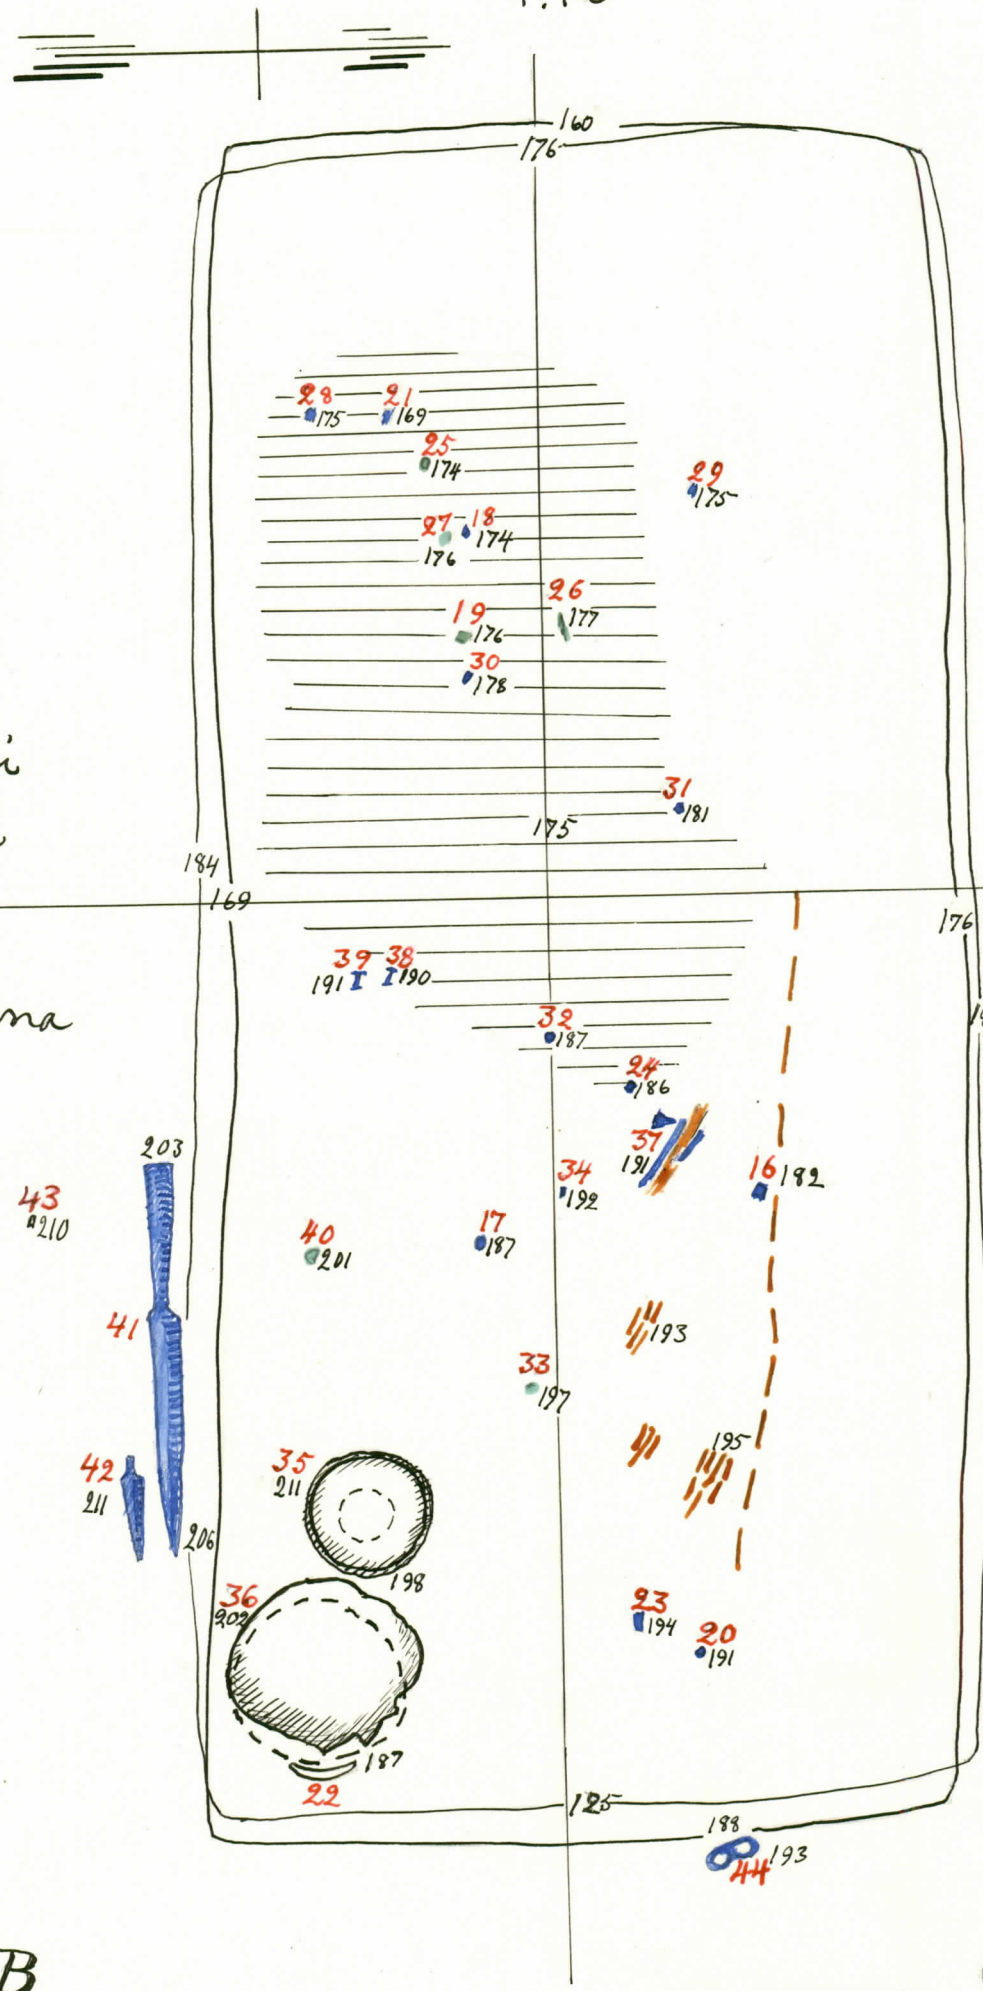 160
176
28 21
175 169
25
174
29
175
27 18
176 174
26
177
19
176
30
178
31
181
175
184
169
176
39 38
191 190
32
187
24
186
37
191
203
34
192
16 182
43
210
17
187
40
201
41
193
33
197
195
35
211
42
211
206
198
36
202
23
194
20
191
187
22
125
188
193
44
B